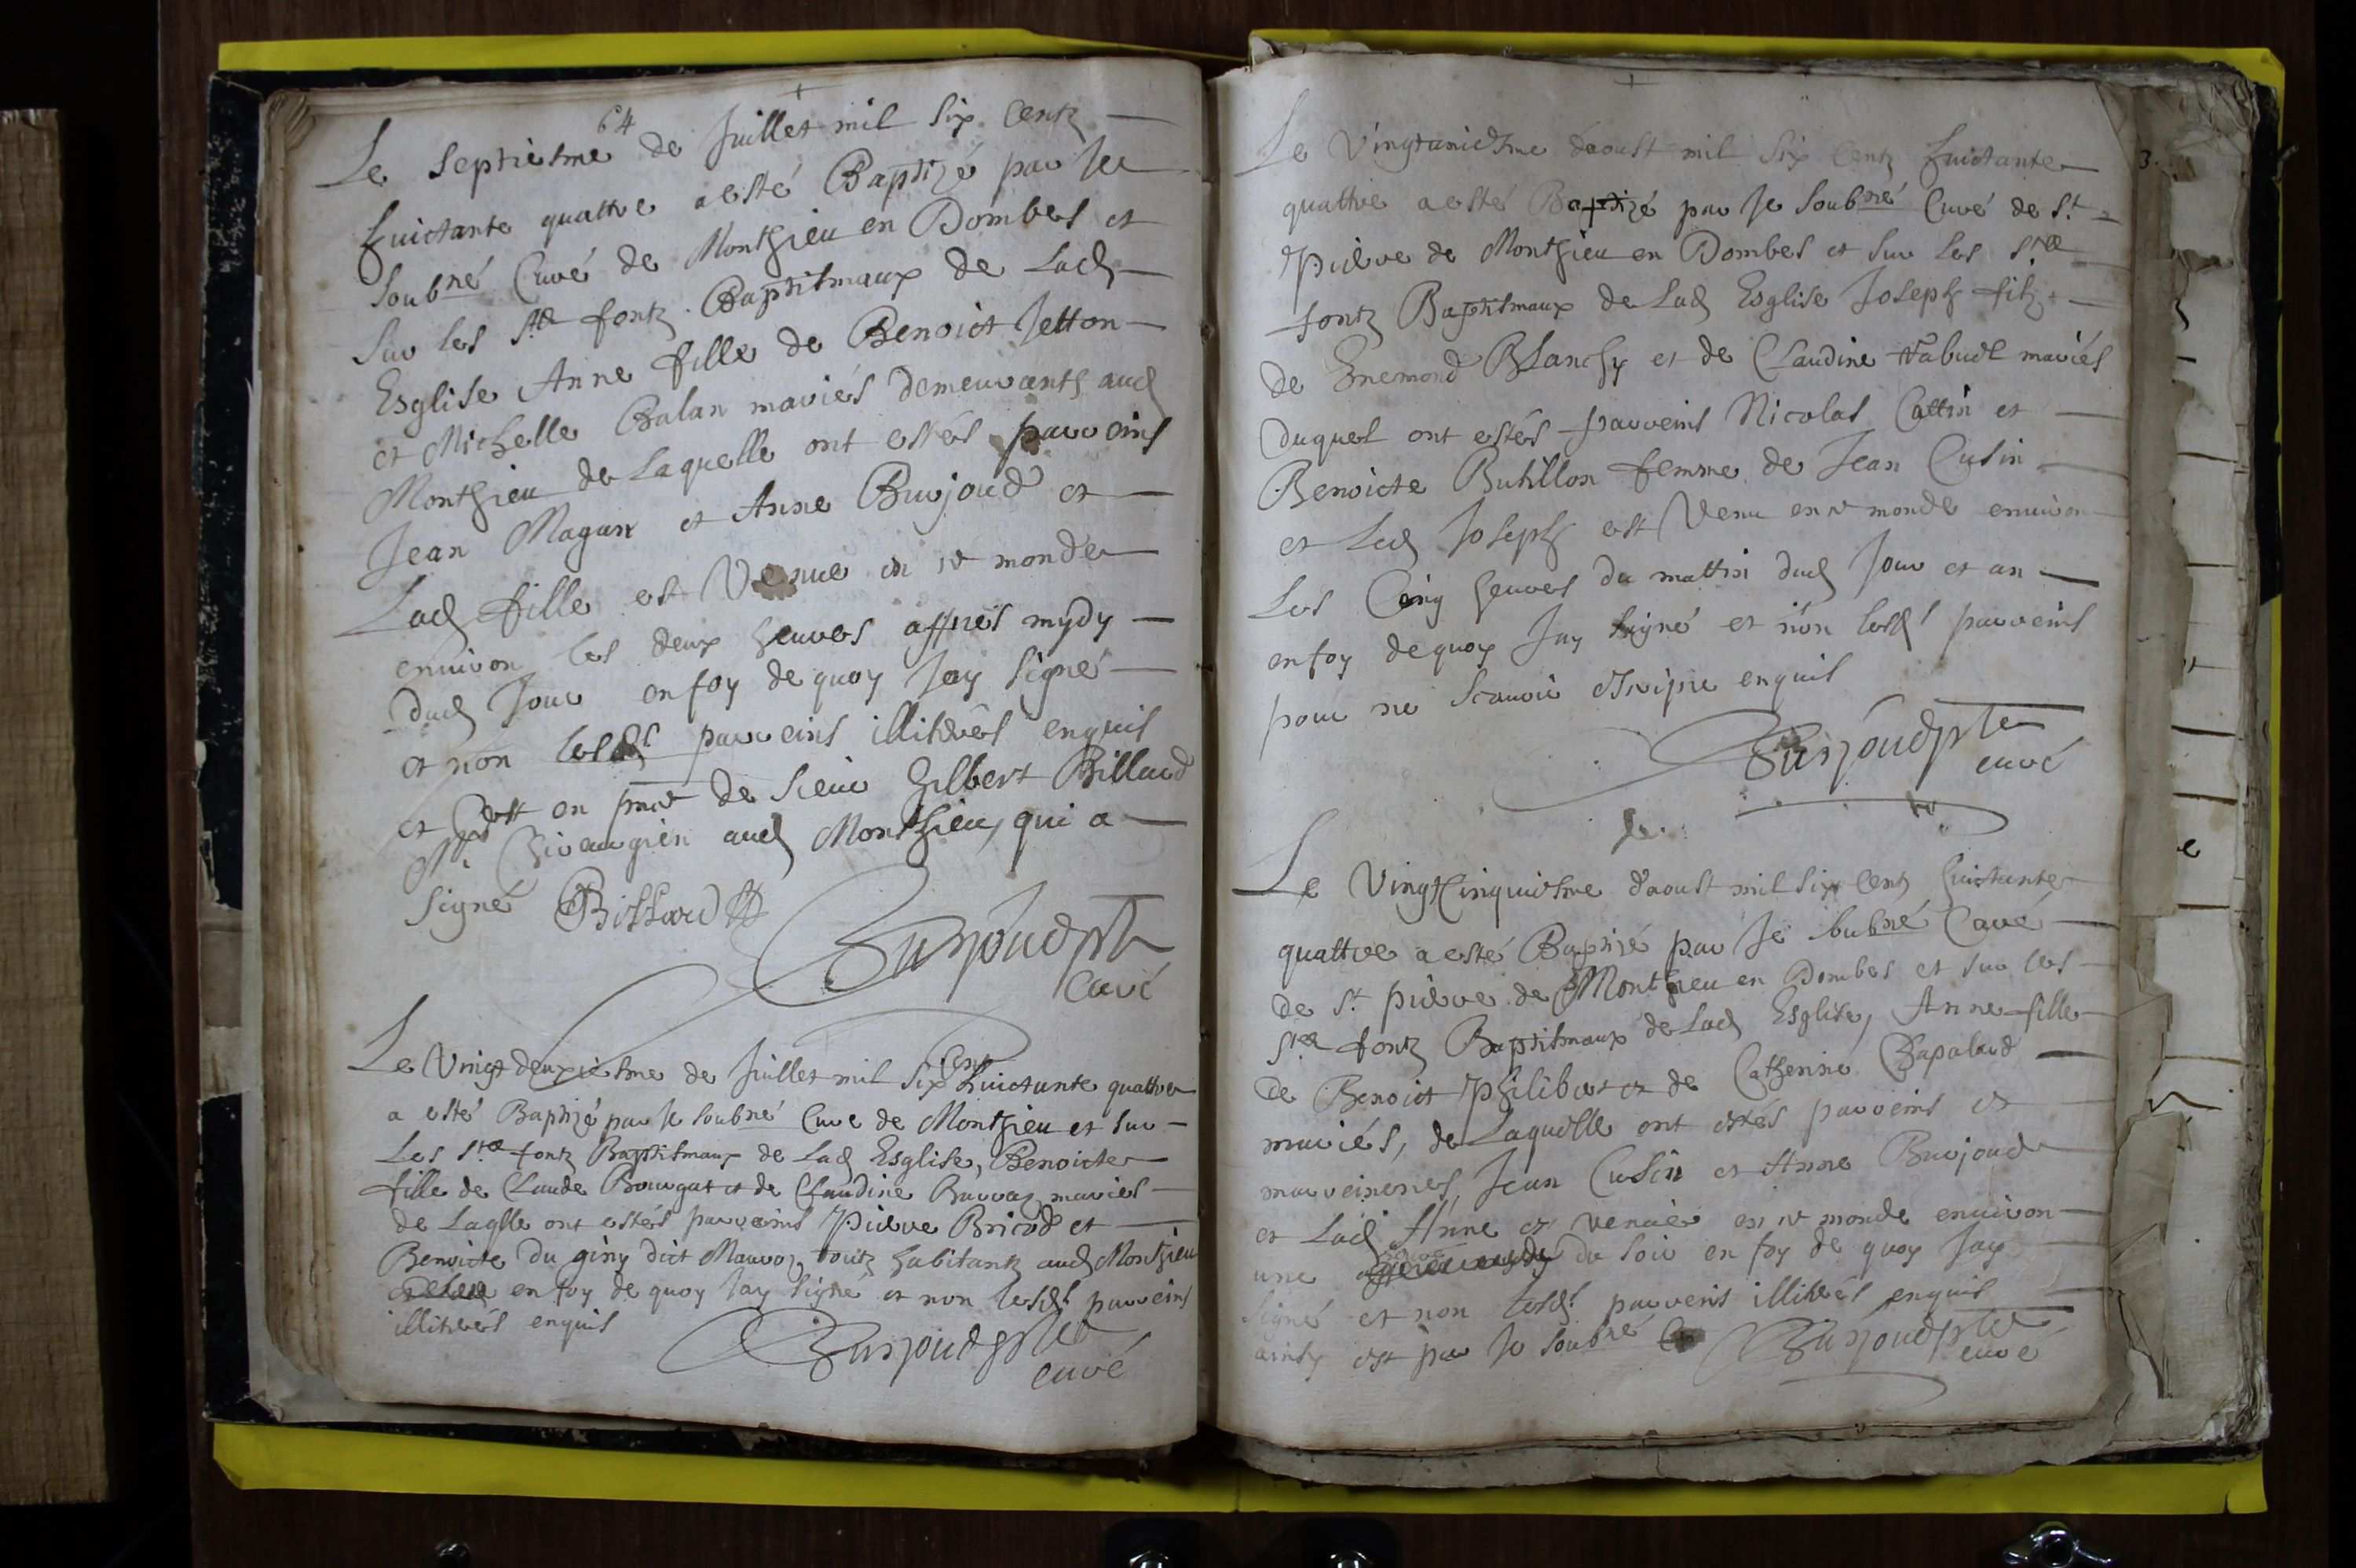 64
Le septiesme de Juillet mil six centz
huictante quattre a esté Baptizé par Je
soubné Curé de Monthieu en Dombes et
sur les Stes fontz Baptismaux de Lad
Esglise Anne fille de Benoict Jetton
et Michelle Balan mariés demeurants aud
Monthieu de Laquelle ont estés parreins
Jean Magan et Anne Burjoud et
Lad fille est Venue en ce monde
environ les deux heures appres mydy
dud Jour en foy de quoy Jay signé
et non lesds parreins illiterés enquis
et en de sieur Gilbert Billard
Mr Chirurgien aud Monthieu, qui a
signé Billard
Burjoud pbre
Curé
Le Vingt deuxiesme de Juillet mil six cent huictante quattre
a esté Baptizé par Je soubné Curé de Monthieu et sur
Les Stes fontz Baptismaux de Lad Esglise, Benoicte
fille de Claude Bourgat et de Claudine mariés
de Laqlle ont estés parreins Pierre Bricod et
Benoicte du giny dict Mauvoz, touts habitants aud Monthieu
en foy de quoy Jay signé et non lesds parreins
illiterés enquis
Burjoud pbre
curé
Le Vingtuniesme daoust mil six centz huictante
quattre a esté Baptizé par Je soubné Curé de St
Pierre de Monthieu en Dombes et sur les Stes
fontz Baptismaux de Lad Esglise Joseph filz
de Enemond Blanchy et de Claudine mariés
duquel ont estés parreins Nicolas Cattin et
Benoicte Butillon femme de Jean Cusin
et Led Joseph est Venu en ce monde environ
Les Cinq heures du mattin dud Jour et an
en foy de quoy Jay signé et non lesds parreins
pour ne scavoir escripre enquis
Burjoud pbre
curé
Le
Le Vingtcinquiesme daoust mil six centz huictante
quattre a esté Baptizé par Je subné Curé
de St pierre de Monthieu en Dombes et sur les
Stes fontz Baptismaux de Lad Esglise, Anne fille
de Benoict Philibert et de Catherine Chapaland
mariés, de Laquelle ont estés parreins et
marreines Jean Cusin et Anne Burjoud
et Lad Anne est venue en ce monde environ
une heure du soir en foy de quoy Jay
signé et non lesds parreins illiterés enquis
ainsy est par Je soubné
Burjoud pbre
curé